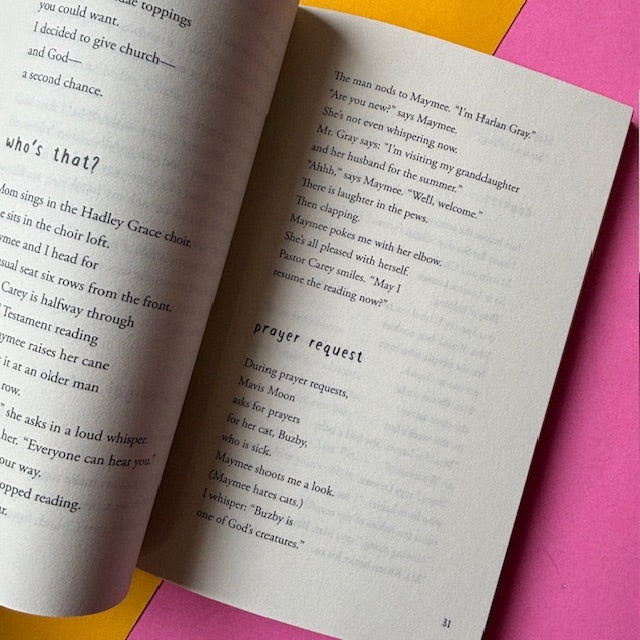 toppings
you could want.
I decided to give church—
and God—
a second chance.
who's that?
Mom sings in the Hadley Grace choir.
sits in the choir loft.
and I head for
seat six rows from the front.
Carey is halfway through
Testament reading
raises her cane
it at an older man
row.
she asks in a loud whisper.
her. "Everyone can hear you."
our way.
reading.
The man nods to Maymee. "I'm Harlan Gray."
"Are you new?" says Maymee.
She's not even whispering now.
Mr. Gray says: "I'm visiting my granddaughter
and her husband for the summer."
"Ahhh," says Maymee. "Well, welcome."
There is laughter in the pews.
Then clapping.
Maymee pokes me with her elbow.
She's all pleased with herself.
Pastor Carey smiles. "May I
resume the reading now?"
prayer request
During prayer requests,
Mavis Moon
asks for prayers
for her cat, Buzby,
who is sick.
Maymee shoots me a look.
(Maymee hates cats.)
I whisper: "Buzby is
one of God's creatures."
31